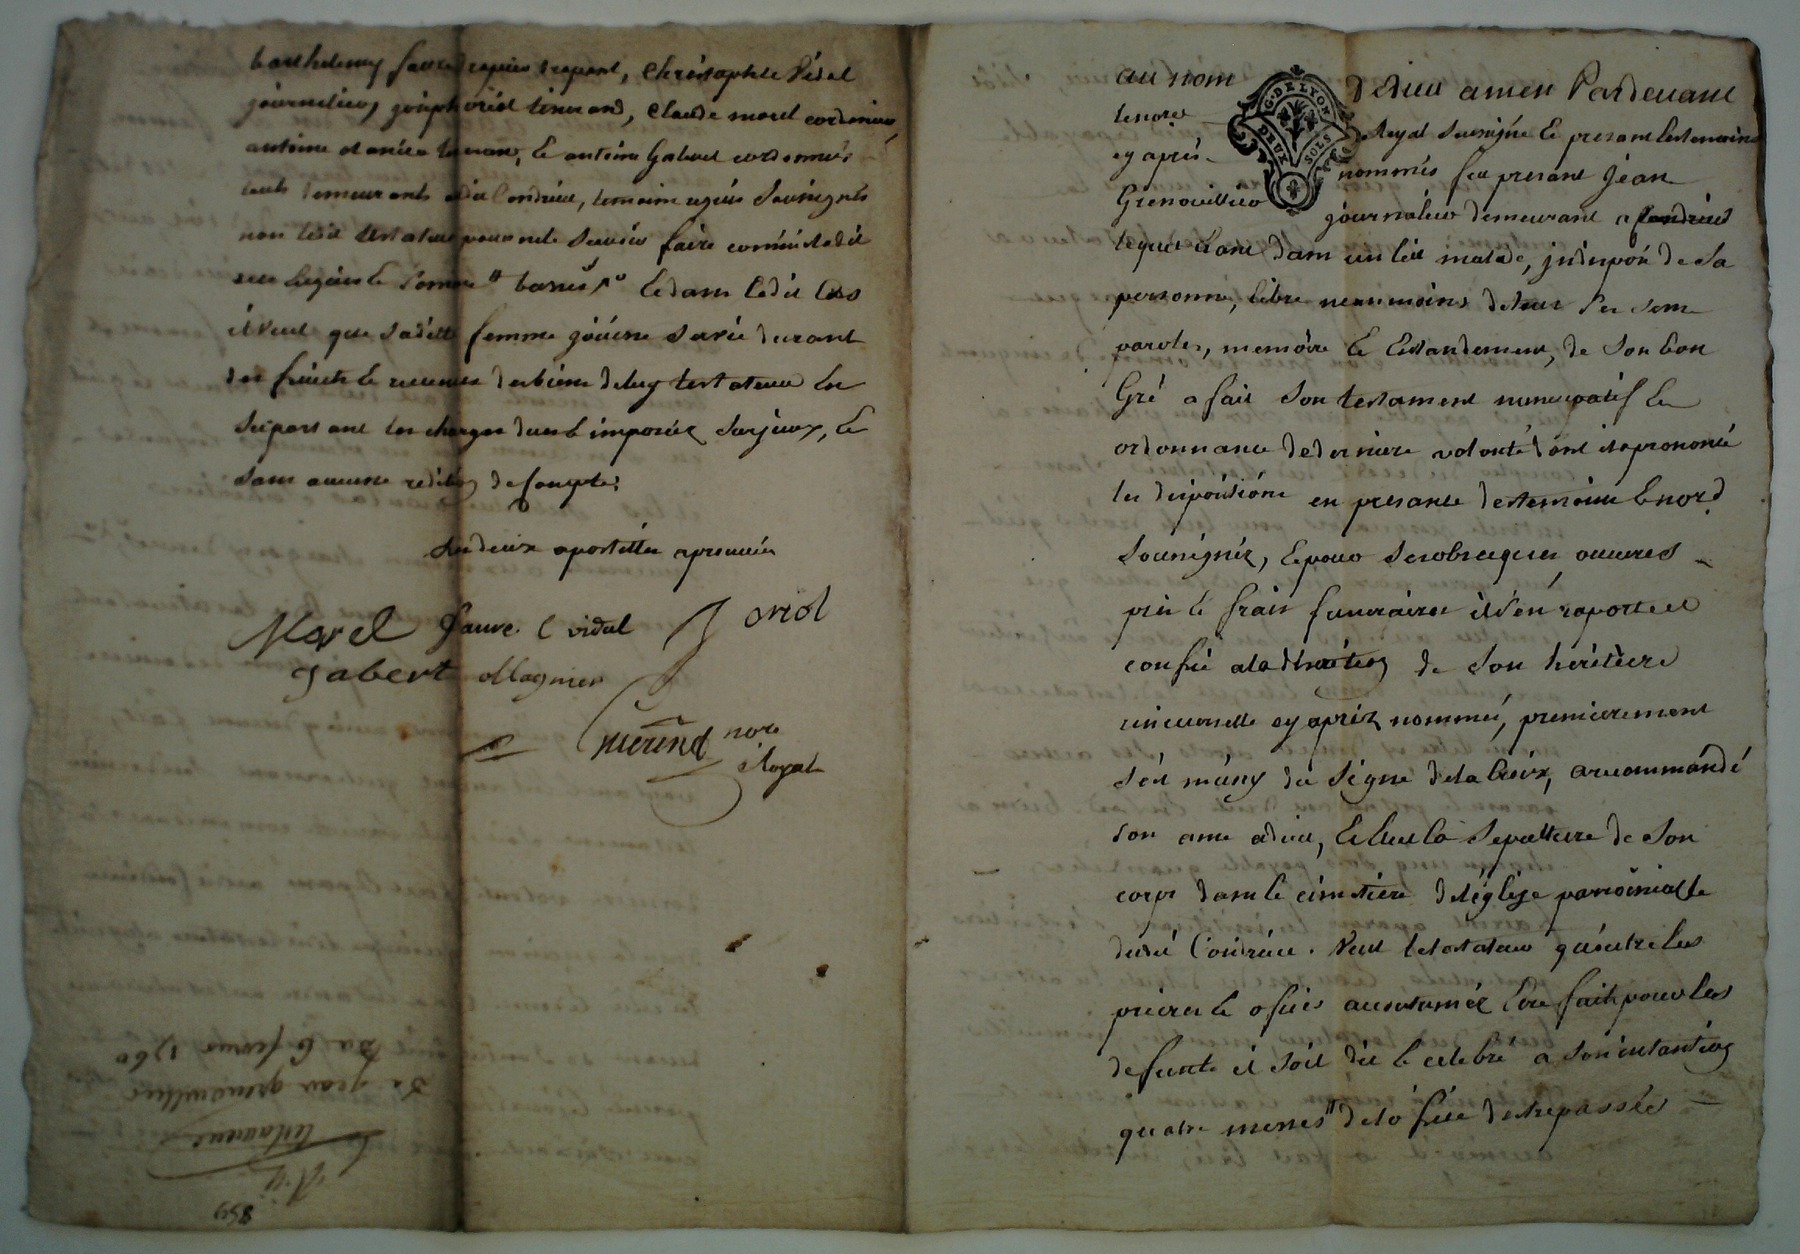 barthelemy faure drapier drapant, Christophle Vidal
journalier, joseph oriol tisserand, Claude morel cordonnier,
antoine et andré, & antoine Gabert cordonniers
touts demeurants audit Condrieu, temoins requis Soussignés
non ledit testateur pour ne le Scavoir faire comme a dit
de ce enquis & Somme " & dans ledit Cas
il Veut que Saditte femme joüisse Sa vie durant
des fruits & revenus des biens de luy testateur En
Suportant les charges dues & imposées Sur jceux, &
Sans aucune reditiōn de Compte:
Les deux apostilles aprouvées
Morel faure C vidal J oriol
gabert ollagnier
nore
Royal
Du 6 fevrier 1760
De jean grenouiller
Testament
859
au nom de dieu amen Pardevant
le nore Royal Soussigné & presant les temoins
cy aprés nommés fut presant Jean
Grenouiller journalier demeurant a Condrieu
lequel étant dans un lit malade, jndisposé de Sa
personne, libre neanmoins de tous Ses Sens
paroles, memoire & Entandement, de Son bon
Gré a fait Son testament nuncupatif &
ordonnance de derniere volonté dont il a prononcé
les dispositions en presance des temoins & nore
Soussignéz, & pour Ses obseques œuvres
pies & frais funeraires il S'en raporte et
confie a la discretiōn de Son héritiere
universelle cy apréz nommée, premierement
S'est muny du Signe de la Croix, a recommandé
Son ame a dieu, Eleu la Sepulture de Son
corps dans le cimetiere de l'église parroissialle
dudit Condrieu. Veut le testateur qu'outre les
prieres & ofices accoutuméz Etre faits pour les
defunts il soit dit & celebré a Son intantiōn
quatre messes " de la fête des trepassés